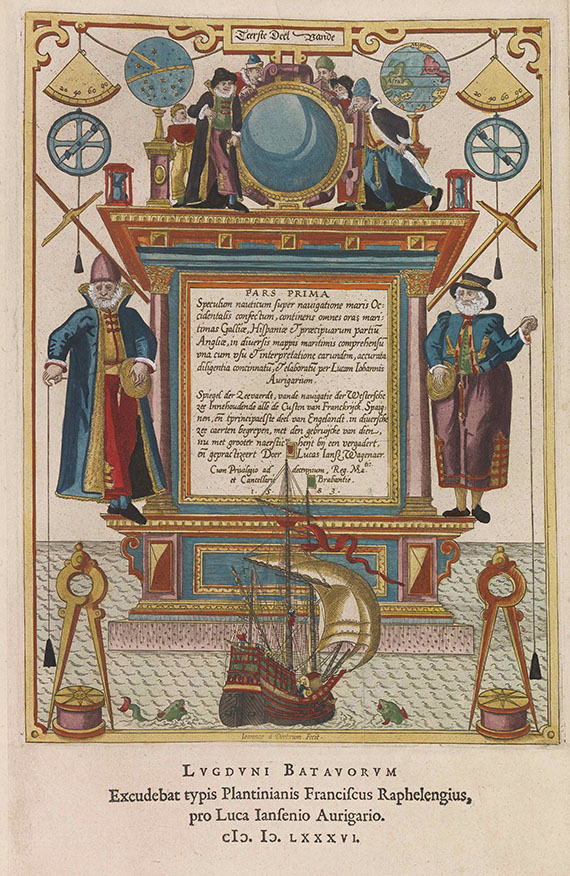 Teerste Deel Vande
20 40 60 90
20 40 60 90
PARS PRIMA
Speculum nauticum super navigatione maris Oc=
cidentalis confectum, continens omnes oras mari:
timas Galliæ, Hispaniæ & præcipuarum partiū
Angliæ, in diversis mappis maritimis comprehensū
una cum usu & interpretatione earundem, accurata
diligentia concinnatū, & elaboratū per Lucam Iohannis
Aurigarium.
Spiegel der Zeevaerdt, vande navigatie der Westersche
zee Innehoudende alle de Custen van Franckrijck, Spaig-
nen, eñ tprincipaelste deel van Engelandt, in diversche
zee caerten begrepen, met den gebruijcke van dien,
nu met grooter naersticheyt bij een vergadert,
eñ gepractizeert Doer Lucas Ianſz Wagenaer.
Cum Privilegio ad decennium, Reg. Ma.tis
et Cancellarie Brabantie.
1583.
Ioannes à Doetecum. Fecit.
LVGDVNI BATAVORVM
Excudebat typis Plantinianis Franciſcus Raphelengius,
pro Luca Ianſenio Aurigario.
cIↄ. Iↄ. LXXXVI.